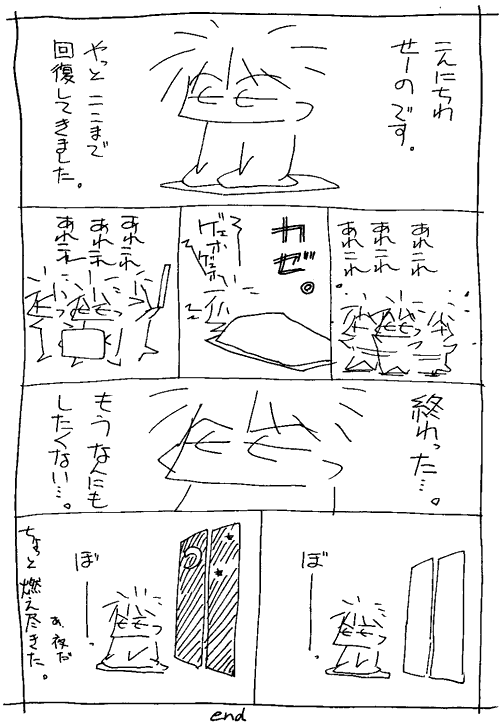 こんにちわ
せーの です。
やっと ここまで
回復してきました。
あれこれ
あれこれ
あれこれ
カゼ。
ゲホ
ゲホ
あれこれ
あれこれ
あれこれ
終わった…。
もうなんにも
したくない…。
ぼ｜。
ぼ｜。
あ、夜だ
ちょっと燃え尽きた。
end